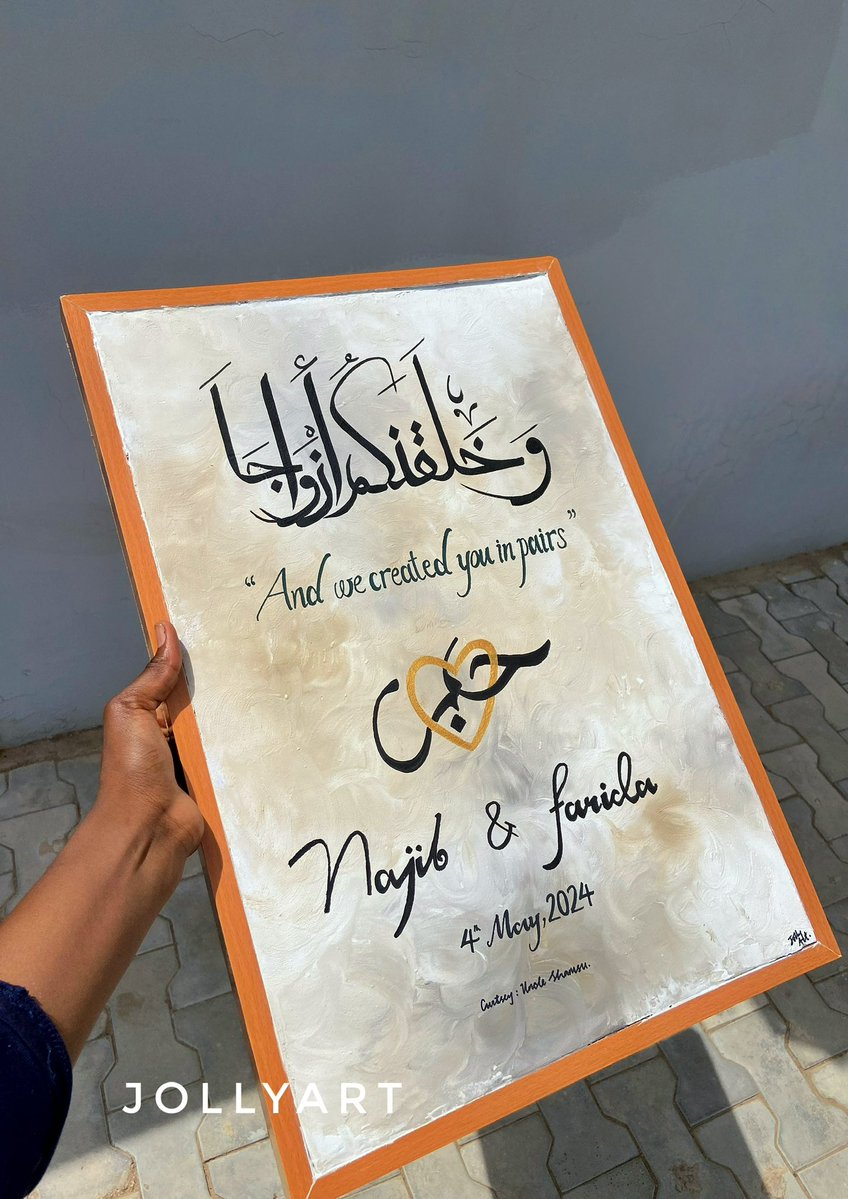 وَخَلَقْنَكُمْ أَزْوَاجاَ
“And we created you in pairs”
حب
Najib & farida
4th May, 2024
Curtsey : Uncle Shamsu.
JOLLYART